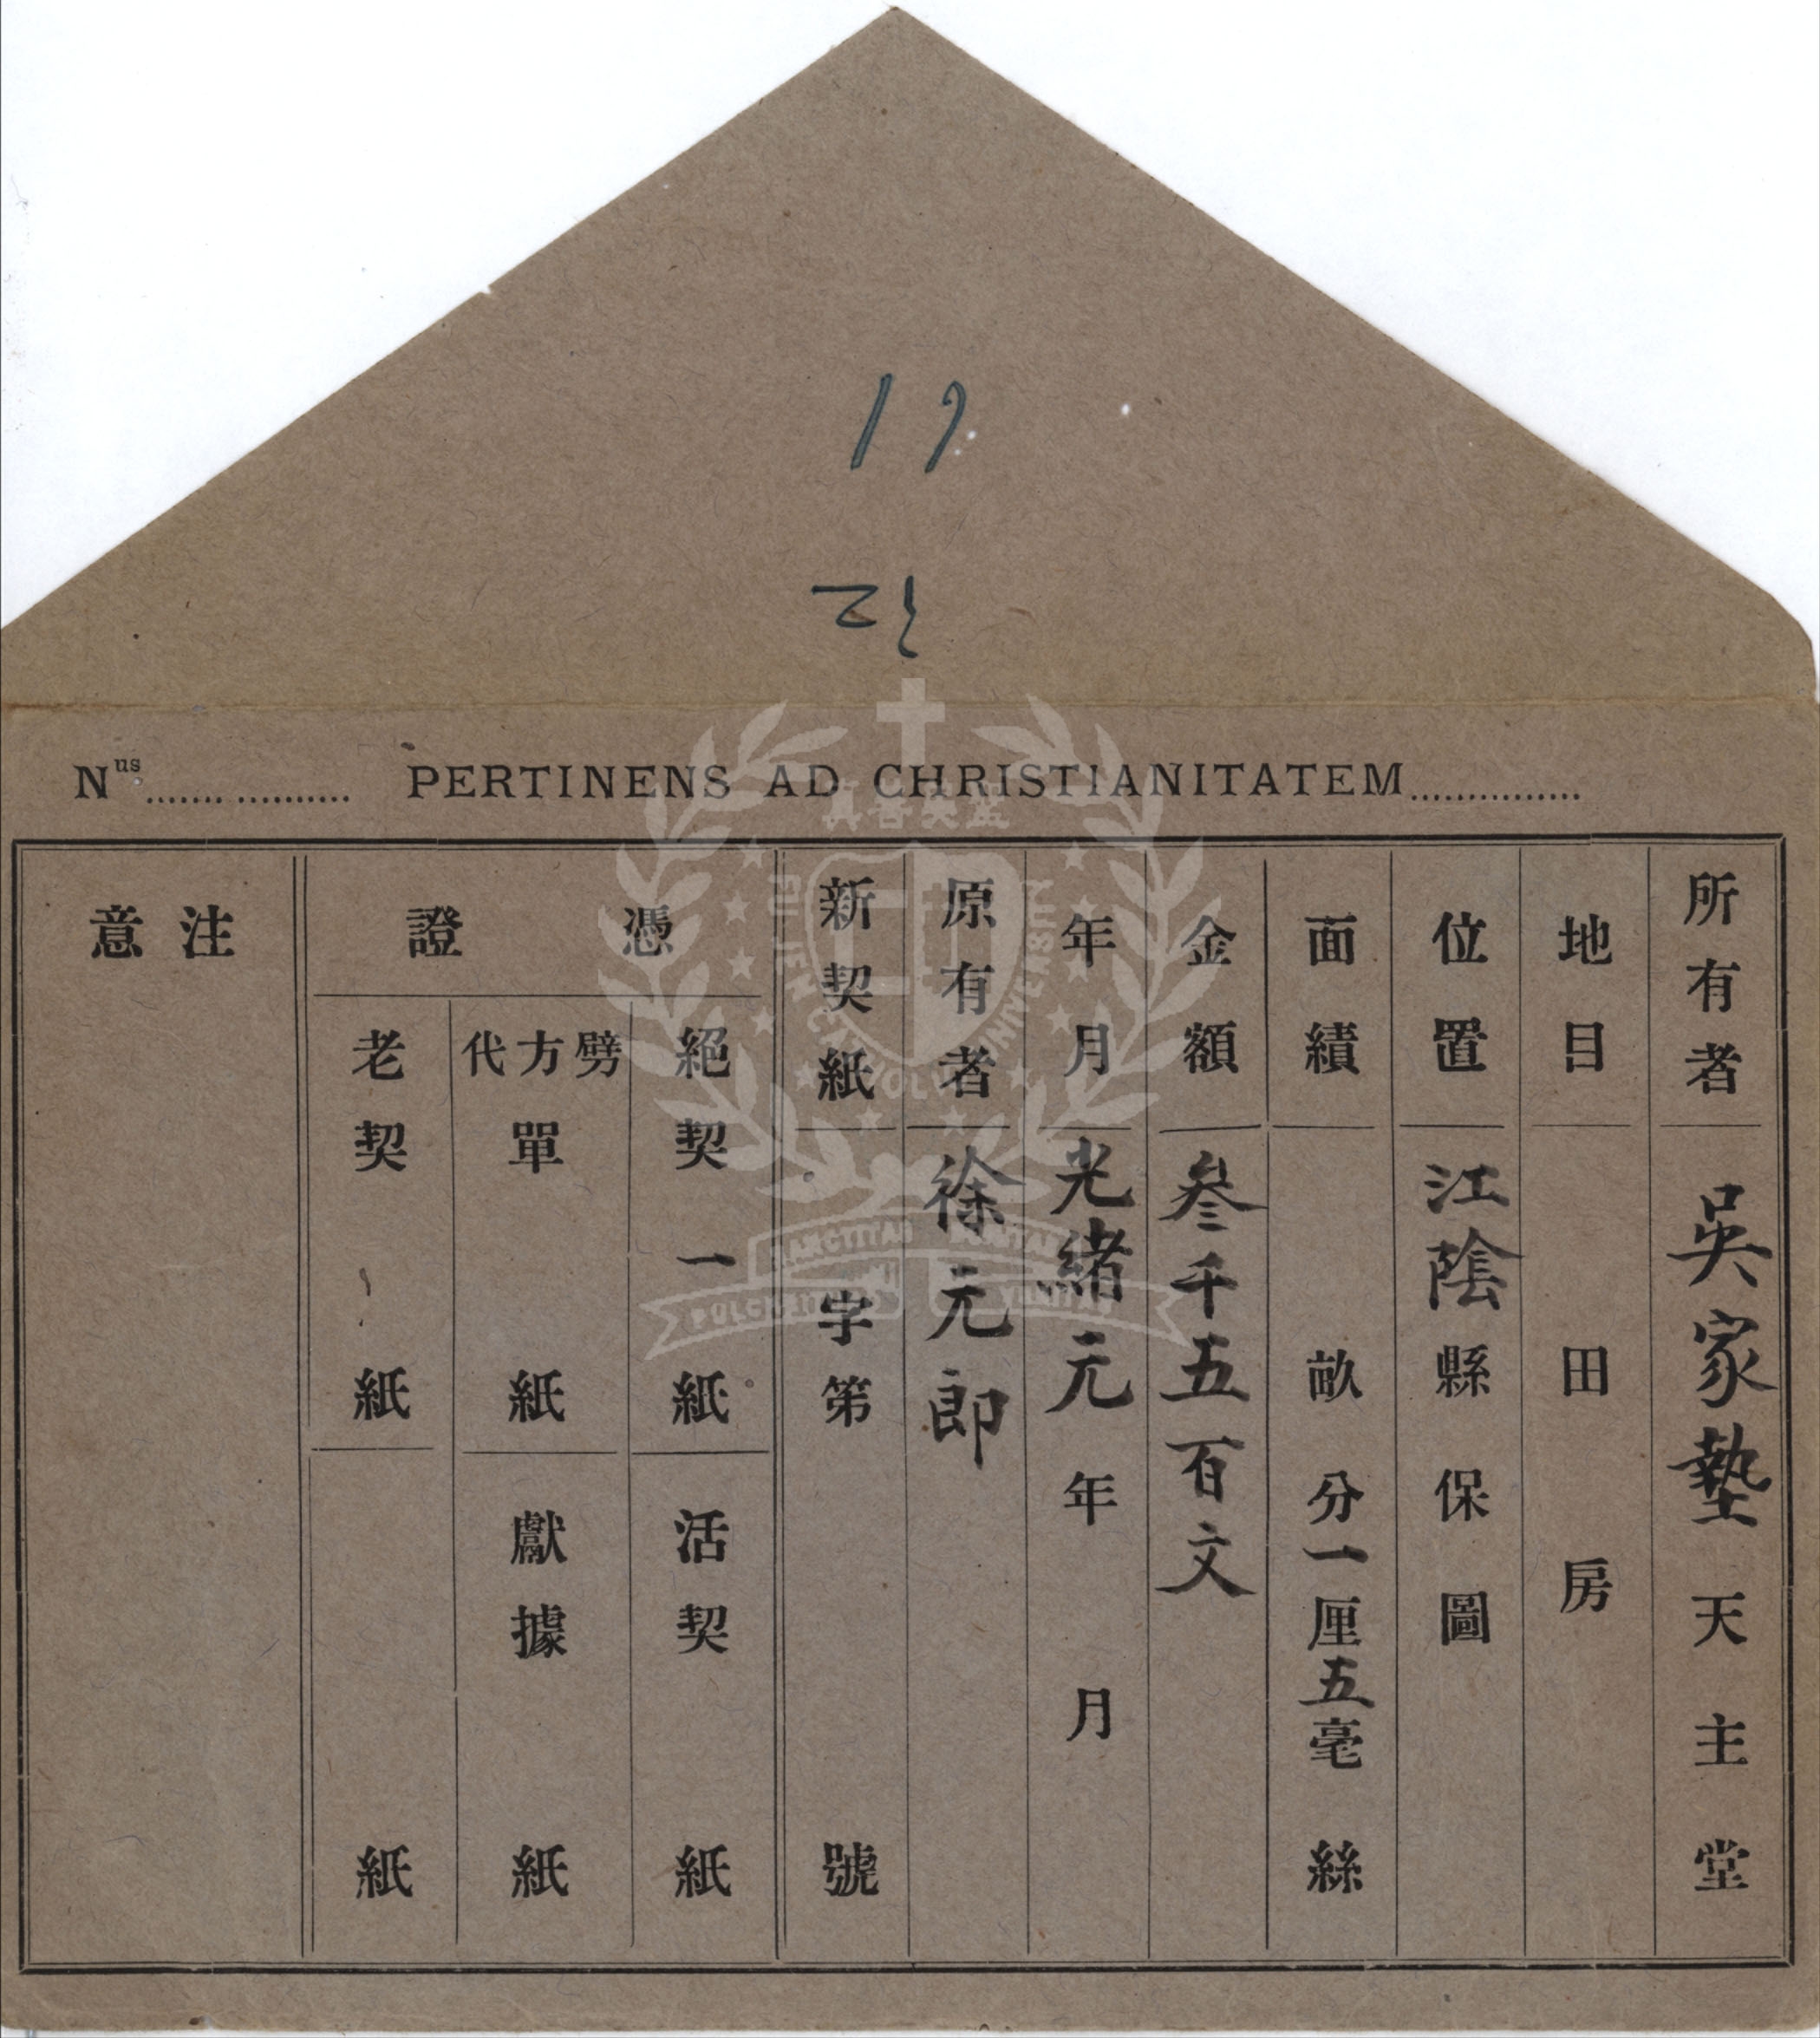 Nus PERTINENS AD CHRISTIANITATEM
所有者 吳家墊天主堂
地目 田 房
位置 江陰縣 保 圖
面績 畝 分一厘五毫 絲
金額 叁千五百文
年月 光緒元年 月
原有者 徐元郎
新契紙 字第 號
憑證
絕契 一紙 活契 紙
劈方代單 紙 獻據 紙
老契 紙 紙
注意
真善美聖
FU JEN CATHOLIC UNIVERSITY
SANCTITAS BONITAS
PULCHRITUDO VERITAS